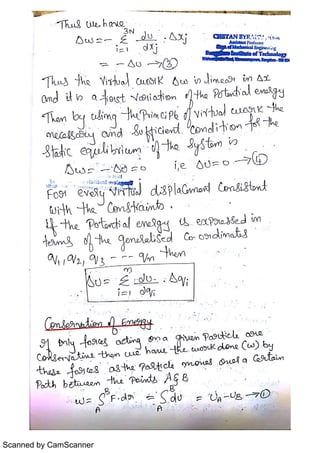 Thus we have
Δw = - Σ(i=1 to 3N) dU/dxj . Δxj
CHETAN BYR
Assistant Professor
Dept. of Mechanical Engineering
Institute of Technology
= - ΔU → ③
Thus the Virtual work Δw is linear in Δx
and it is a first Variation of the Potential energy
Then by using the Principle of Virtual work the
necessary and Sufficient Condition for the
Static equilibrium of the System is
Δw = - ΔU = 0 i,e ΔU = 0 → ④
For every Virtual displacement Consistent
with the Constraints.
If the Potential energy is expressed in
terms of the generalised Co-ordinates
q1, q2, q3 - - - qn then
ΔU = Σ(i=1 to n) dU/dqi . Δqi
Conservation of Energy
If only forces acting on a given Particle are
Conservative then we have the work done (w) by
these forces as the Particle moves over a Certain
Path between the Points A & B
w = ∫(A to B) F.dr = ∫(A to B) dU = UA - UB → ①
Scanned by CamScanner